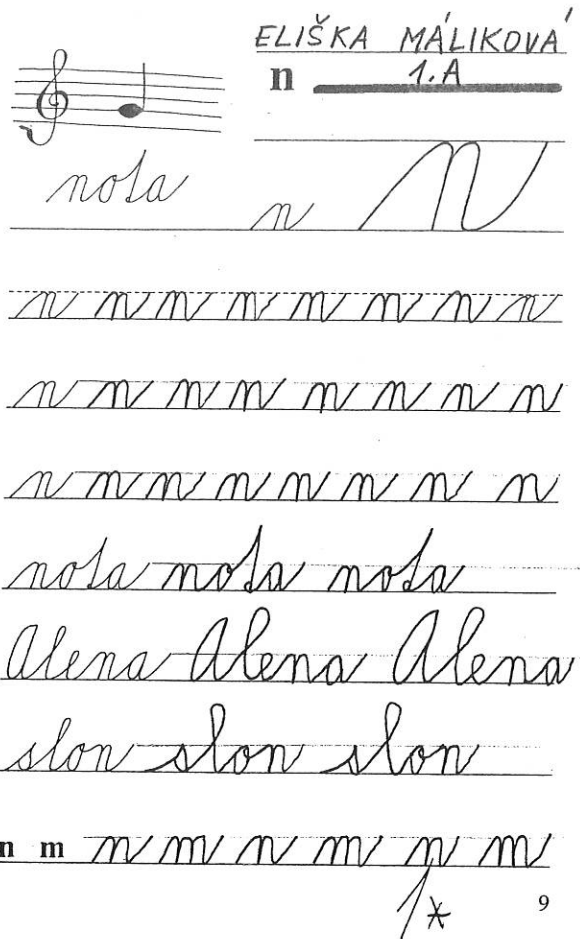 ELIŠKA MÁLIKOVÁ
n 1.A
nota n n
n n n n n n n n
n n n n n n n n
n n n n n n n n
nota nota nota
Alena Alena Alena
slon slon slon
n m n m n m n m
1*
9